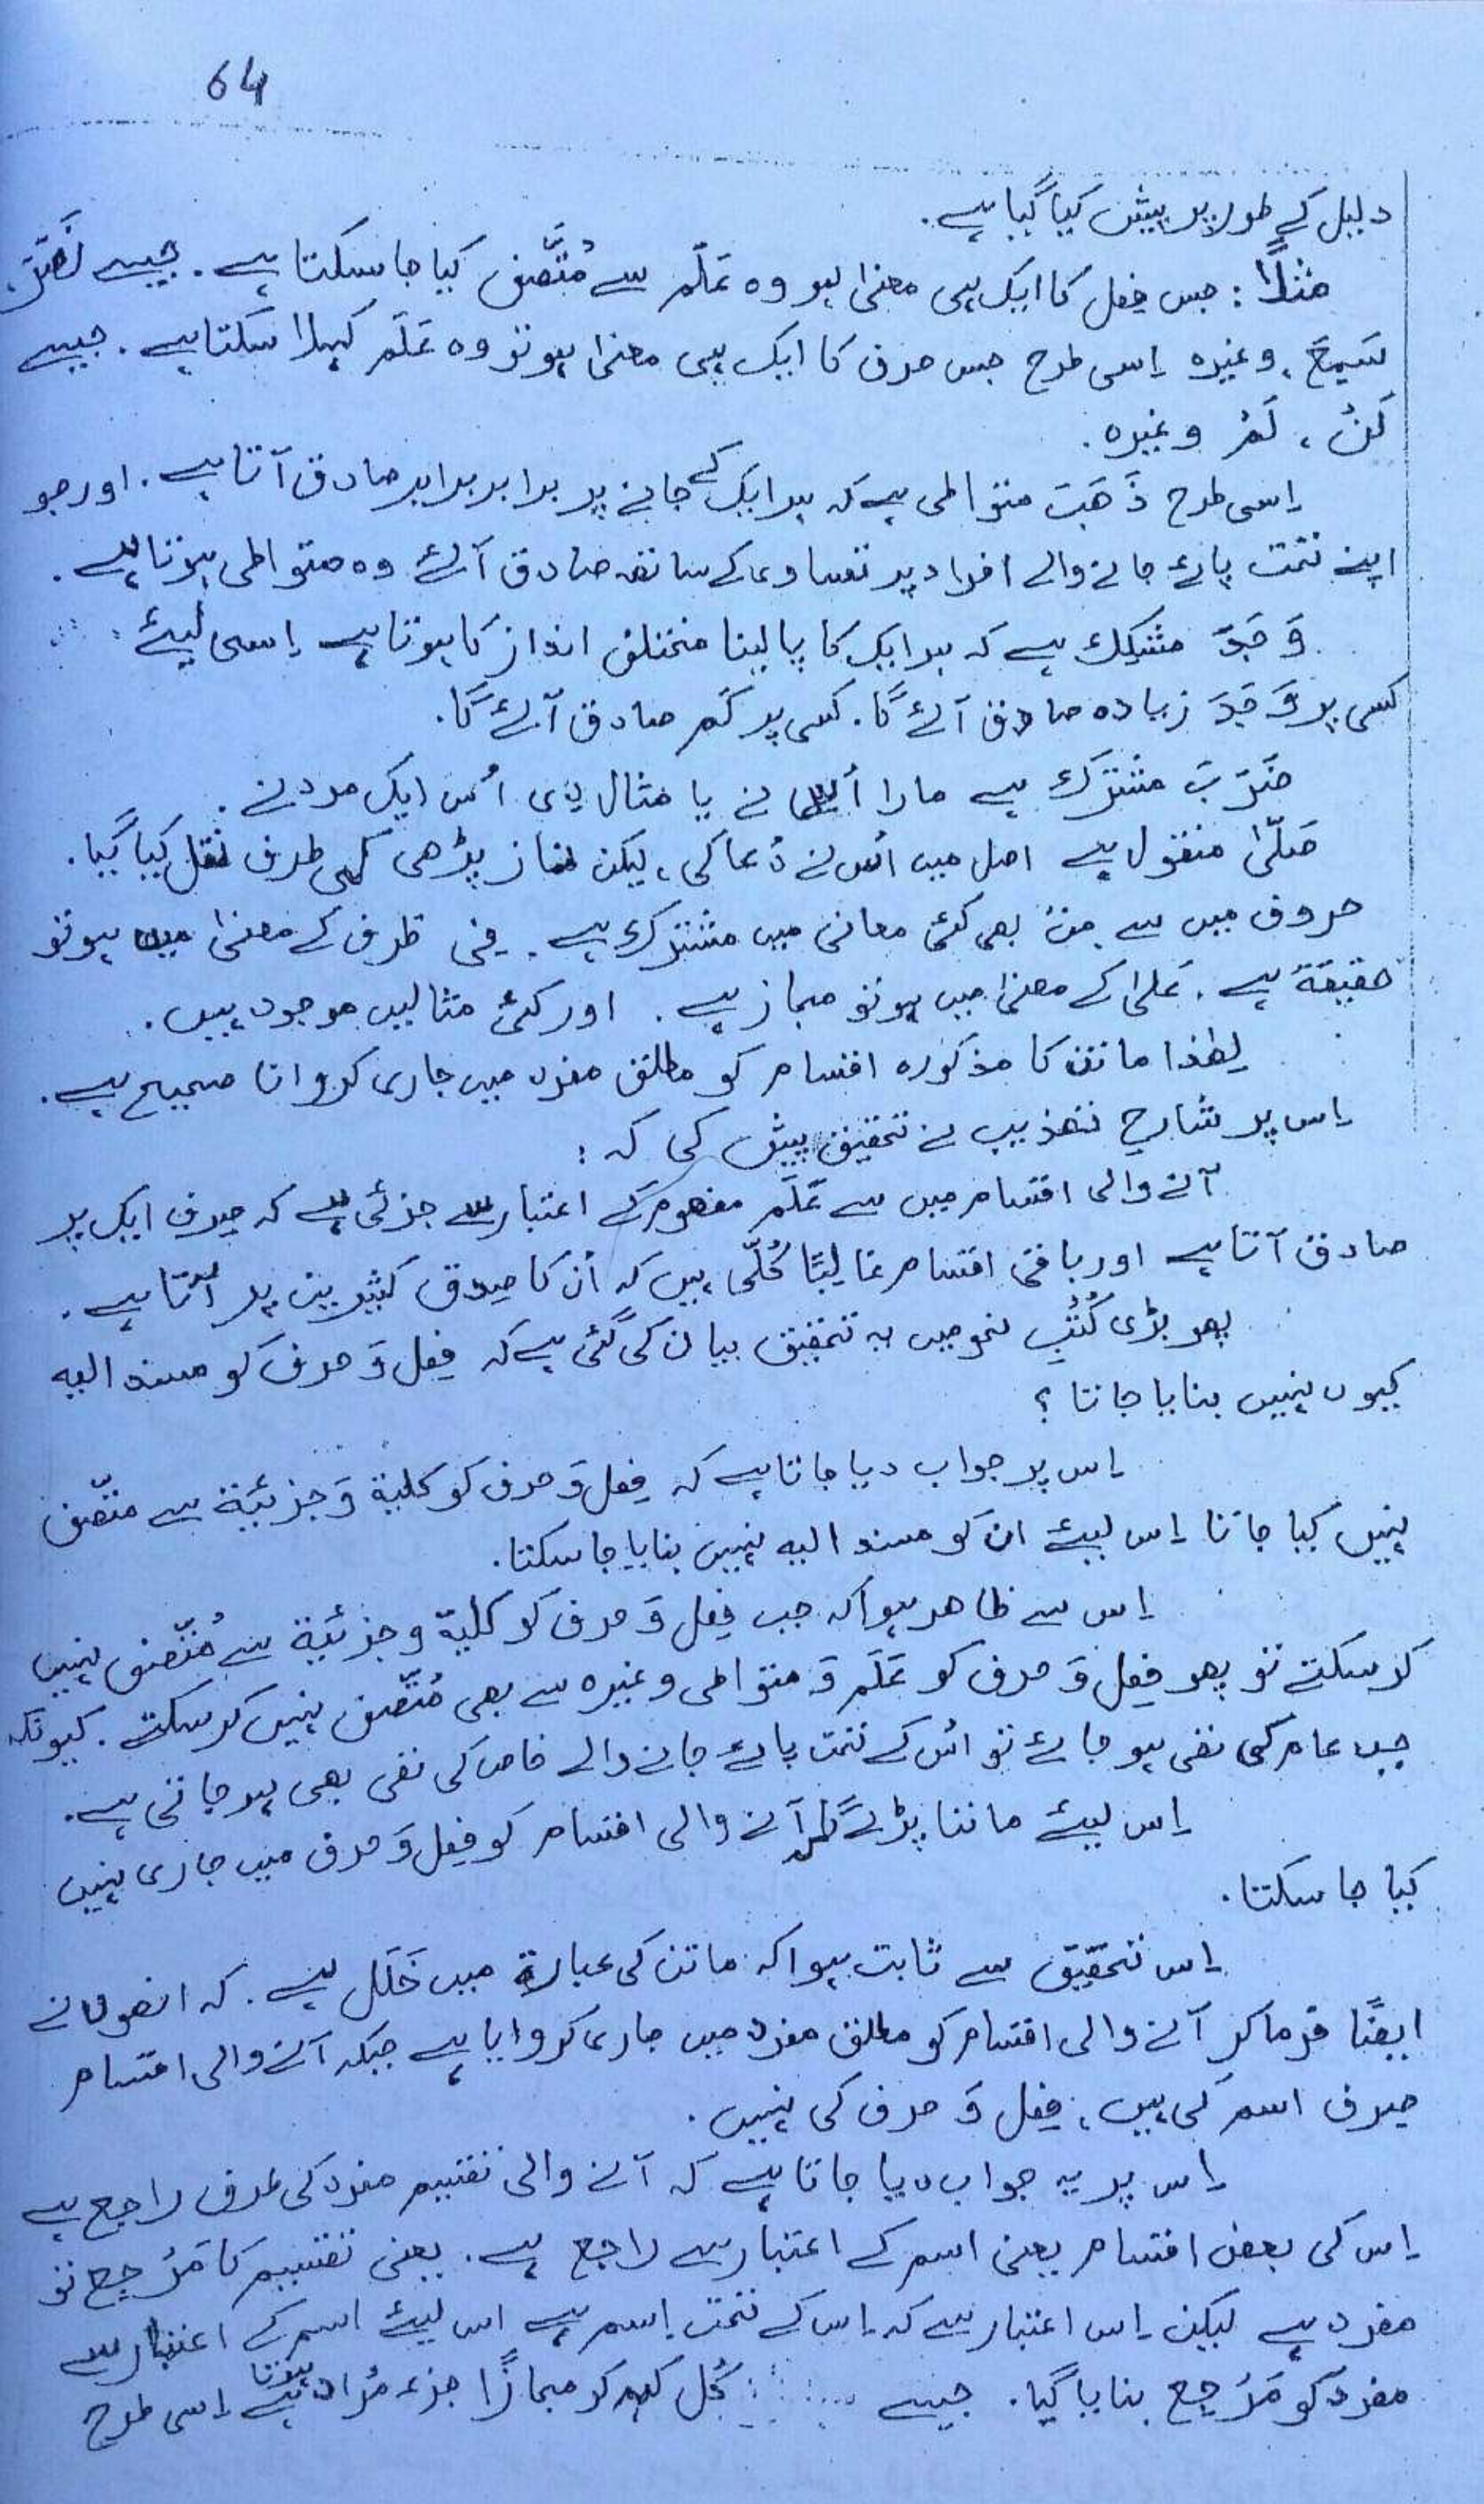 64
دلیل کے طور پر پیش کیا گیا ہے.
مثلاً : جس فِعل کا ایک ہی معنیٰ ہو وہ عَلَم سے مُتَّصِف کیا جا سکتا ہے. جیسے نَصَرَ،
سَمِعَ، وغیرہ اِسی طرح جس حرف کا ایک ہی معنیٰ ہو تو وہ عَلَم کہلا سَکتا ہے. جیسے
لَنْ ، لَمْ وغیرہ.
اِسی طرح ذَھَبَ متواطی ہے کہ ہر ایک کے جانے پر برابر برابر صادق آتا ہے. اور جو
اپنے تحت پائے جانے والے افراد پر تساوی کے ساتھ صادق آئے وہ متواطی ہوتا ہے.
وَجَدَ مشکِک ہے کہ ہر ایک کا پا لینا مختلف انداز کا ہوتا ہے اِسی لیئے
کسی پر وَجَدَ زیادہ صادق آئے گا. کسی پر کَم صادق آئے گا.
ضَرَبَ مشترَک ہے مارا اُس نے یا مثال دی اُس ایک مرد نے.
صَلّیٰ منقول ہے اصل میں اُس نے دُعا کی، لیکن نماز پڑھی کی طرف نقل کیا گیا.
حروف میں سے مِنْ بھی کئی معانی میں مشترک ہے. فِی ظرف کے معنیٰ میں ہو تو
حقیقۃ ہے. عَلیٰ کے معنیٰ میں ہو تو مجاز ہے. اور کئی مثالیں موجود ہیں.
لھٰذا ماتن کا مذکورہ اقسام کو مطلق مفرد میں جاری کروانا صحیح ہے.
اِس پر شارحِ تھذیب نے تحقیق پیش کی کہ :
آنے والی اقسام میں سے عَلَم مفھوم کے اعتبار سے جزئی ہے کہ صِرف ایک پر
صادق آتا ہے اور باقی اقسام غالِبًا کُلّی ہیں کہ اُن کا صِدق کثیرین پر آتا ہے.
پھر بڑی کُتُبِ نحو میں یہ تحقیق بیان کی گئی ہے کہ فِعل وَ حرف کو مسند الیہ
کیوں نہیں بنایا جاتا ؟
اِس پر جواب دیا جاتا ہے کہ فِعل وَ حرف کو کلیۃ وَ جزئیَۃ سے متّصِف
نہیں کیا جاتا اِس لیئے ان کو مسند الیہ نہیں بنایا جا سکتا.
اِس سے ظاھر ہوا کہ جب فِعل وَ حرف کو کلیۃ و جزئیَۃ سے مُتّصِف نہیں
کر سکتے تو پھر فِعل وَ حرف کو عَلَم وَ متواطی وغیرہ سے بھی مُتّصِف نہیں کر سکتے. کیونکہ
جب عام کی نفی ہو جائے تو اُس کے تحت پائے جانے والے خاص کی نفی بھی ہو جاتی ہے.
اِس لیئے ماننا پڑے گا کہ آنے والی اقسام کو فِعل وَ حرف میں جاری نہیں
کیا جا سکتا.
اِس تحقیق سے ثابت ہوا کہ ماتن کی عبارۃ میں خَلَل ہے. کہ انھوں نے
ایضًا فرما کر آنے والی اقسام کو مطلق مفرد میں جاری کروایا ہے جبکہ آنے والی اقسام
صِرف اسم کی ہیں، فِعل وَ حرف کی نہیں.
اِس پر یہ جواب دیا جاتا ہے کہ آنے والی تقسیم مفرد کی طرف راجع ہے
اِس کی بعض اقسام یعنی اسم کے اعتبار سے راجع ہے. یعنی تقسیم کا مَرْجِع تو
مفرد ہے لیکن اِس اعتبار سے کہ اِس کے تحت اِسم ہے اس لیئے اسم کے اعتبار سے
مفرد کو مَرْجِع بنایا گیا. جیسے کُل کہہ کر مجازًا جزء مُراد ہوتا ہے اِسی طرح